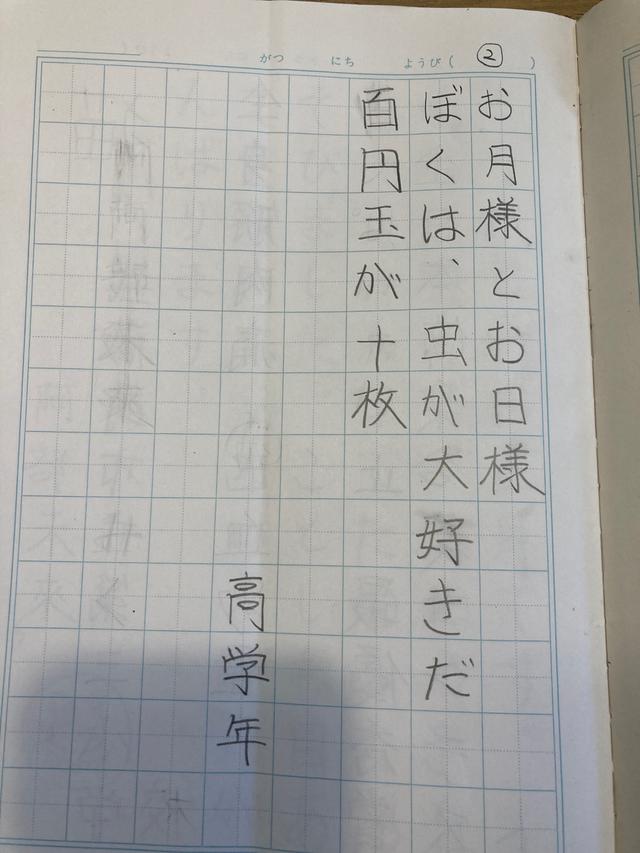 がつ にち ようび( ② )
お月様とお日様
ぼくは、虫が大好きだ
百円玉が十枚
高学年